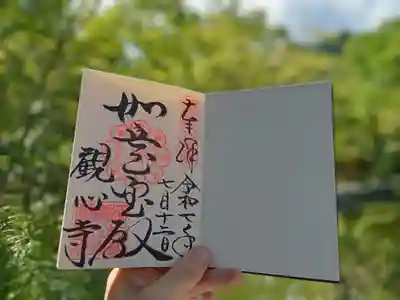 奉拝 令和七年
七月十二日
如意宝殿
觀心寺